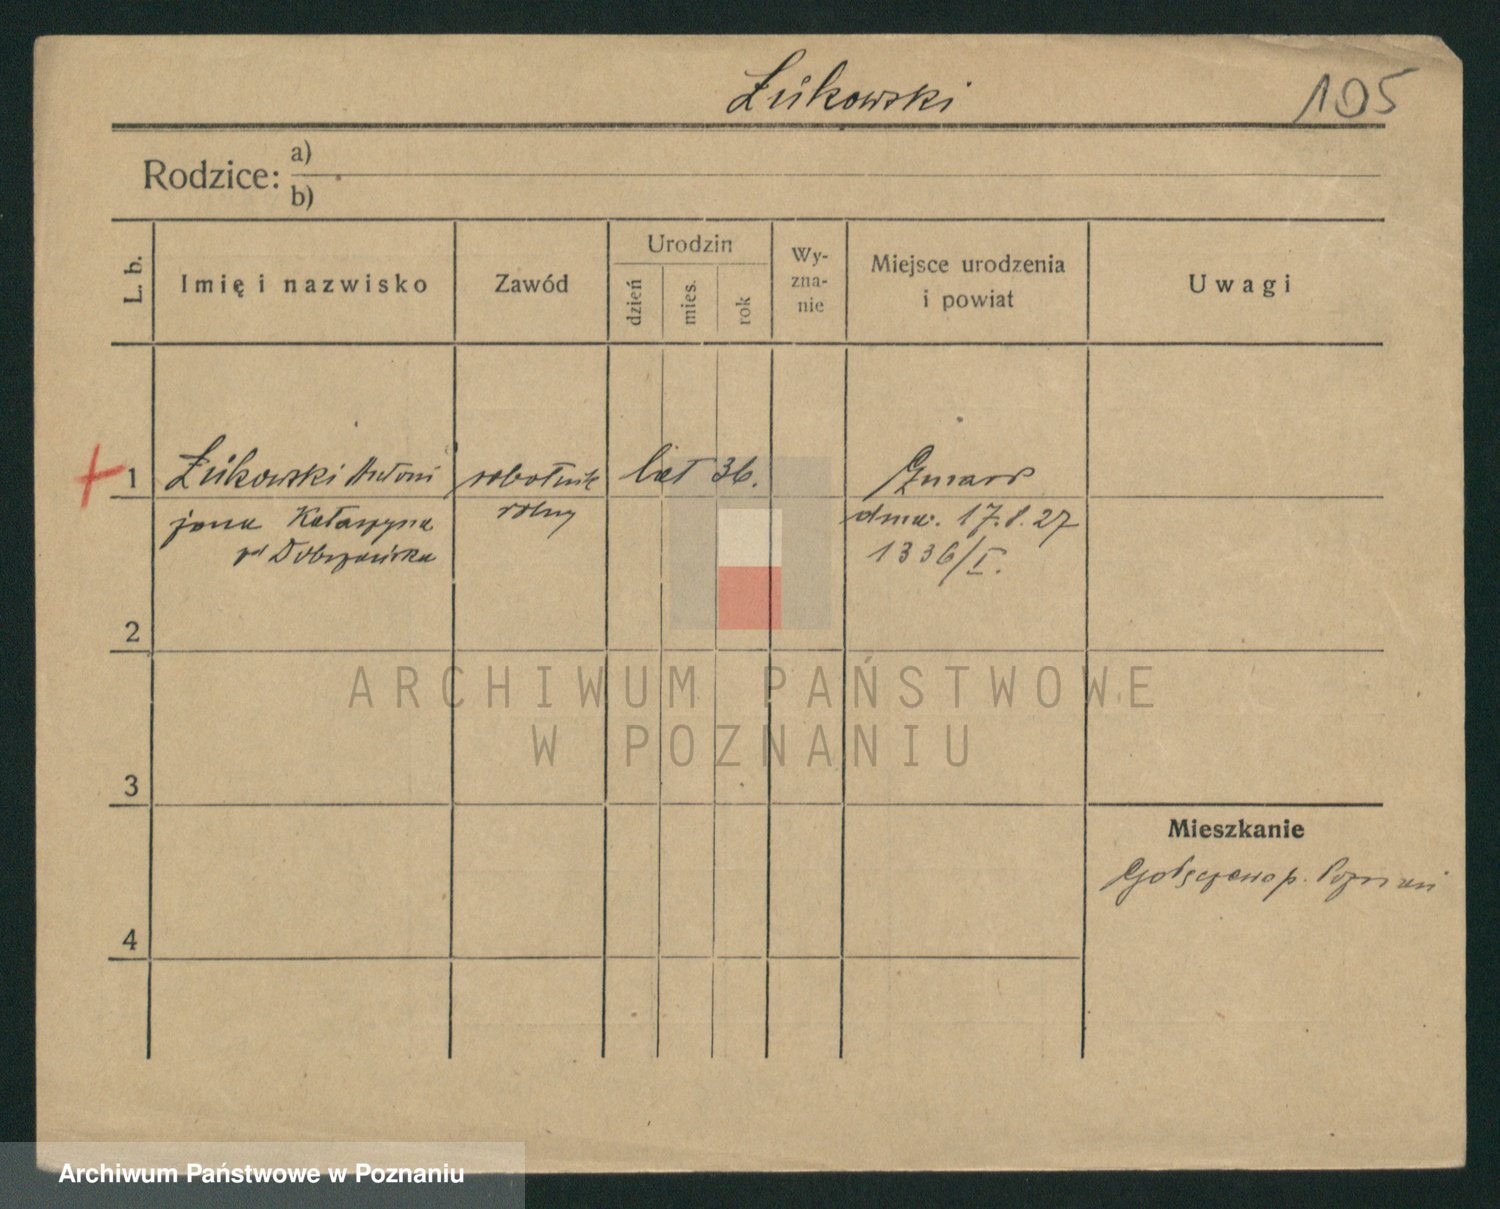 Żukowski
105
Rodzice: a)
b)
L. b.
Imię i nazwisko
Zawód
Urodzin
dzień
mies.
rok
Wy-
zna-
nie
Miejsce urodzenia
i powiat
Uwagi
1
Żukowski Antoni
robotnik
lat 36.
Zmarł
żona Katarzyna
rolny
dnia. 17.8.27
zd Dobrzańska
1336/I.
2
ARCHIWUM PAŃSTWOWE
W POZNANIU
3
Mieszkanie
p. Poznań
4
Archiwum Państwowe w Poznaniu